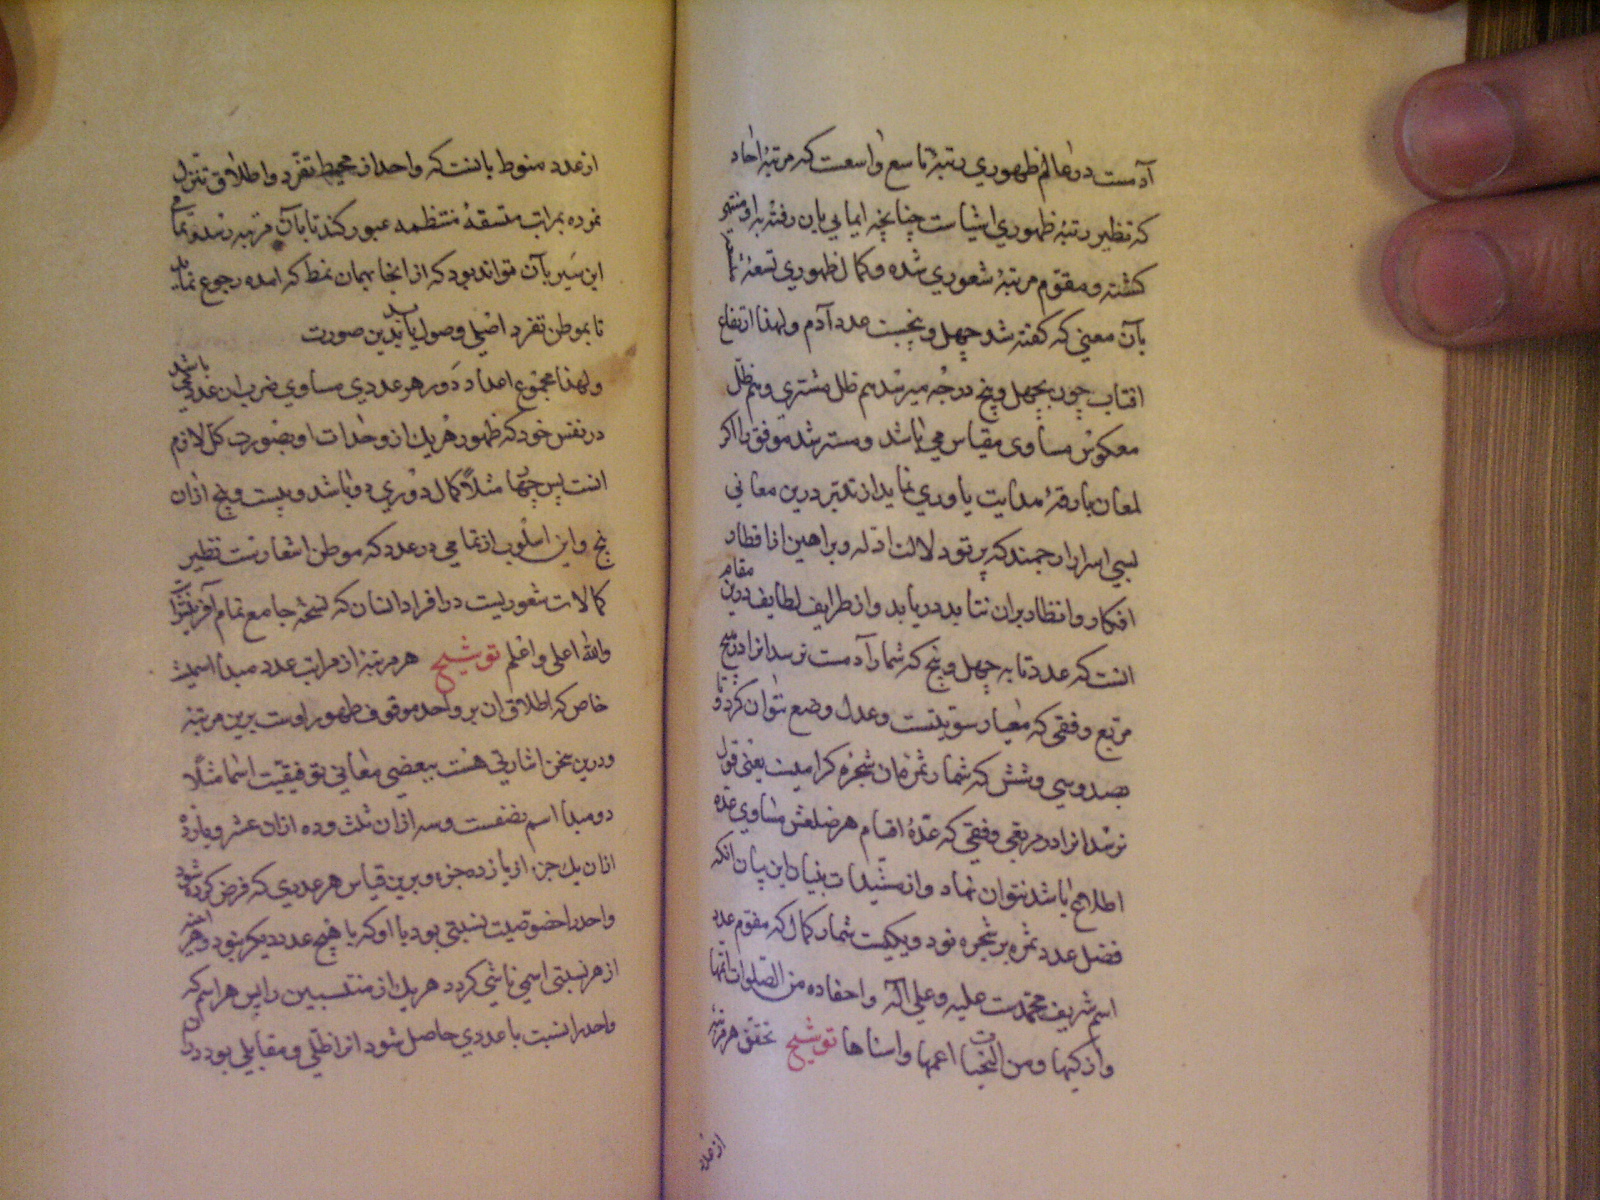 آدمست در عالم ظهوری رتبهٔ تاسع واسعت که مرتبهٔ احاد
که نظیر رتبهٔ ظهوری اشیاست چنانچه ایمایی بان رفته به او منتهی
کشته و مقوّم مرتبهٔ شعوری شده و کمال ظهوری تسعهٔ
بآن معنی که کفته شد چهل و پنجست عدد آدم و لهذا ارتفاع
افتاب چون بچهل و پنج درجه میرسد هم ظل مشتری و هم ظلّ
معکوس مساوی مقیاس می باشد و مسترشد موفق را اکر
لمعان بارقهٔ هدایت یاوری نماید از تدبّر درین معانی
بسی اسرار ارجمند که پرتو دلالت ادله و براهین از اقطار
افکار و انظار بران نتابد دریابد و از طرایف لطایف درین مقام
انست که عدد تا به چهل و پنج که شمار آدمست نرسد انرا در هیچ
مربّع وفقی که معیار سویتست و عدل وضع نتوان کرد و تا
بصد و سی و شش که شمار شجره کرامیست یعنی قول
نرسد انرا در مربعی وفقی که عدّهٔ اقسام هر ضلعش مساوی عدّه
اطلاع باشد نتوان نهاد و از مشیّدات بنیاد این بیان انکه
فضل عدد ثمره بر شجره نود و یکیست شمار کمال که مقوم عدد
اسم شریف محمّدست علیه و علی آله و احفاده من الصّلوات اتمّها
و ازکیها و من التحیات اعمها و اسناها توشیح تحقق هر مرتبهٔ
از عدد
از عدد منوط بانست که واحد از محیط تفرّد و اطلاق تنزل
نموده بمراتب متسقهٔ منتظمه عبور کند تا بآن مرتبه رسد و تمامی
این سَیر بآن تواند بود که از انجا بهمان نمط که امده رجوع نماید
تا بموطن تفرد اصلی وصول یابد بدین صورت
و لهذا مجموع اعداد دَور هر عددی مساوی ضرب ان عدد می باشد
در نفس خود که ظهور هریك از وحدات او بصورت کل لازم
انست پس چهار مثلاً کمال دَوری دو باشد و بیست و پنج ازان
پنج و این اسلوب از تمامی در عدد که موطن اشعارست نظیر
کمالات شعوریست در افراد انسان که نسخهٔ جامع تمام آفرینش
والله اعلی و اعلم توشیح هر مرتبهٔ از مراتب عدد مبدا اسمیست
خاص که اطلاق ان بر واحد موقوف ظهور اوست برین مرتبه
و درین سخن اشارتی هست ببعضی معانی توفیقیّت اسما مثلًا
دو مبدا اسم نصفست و سه ازان ثلث و ده ازان عشر و یازده
ازان یك جزء از یازده جزء و برین قیاس هر عددی که فرض کرده شود
واحد را خصوصیت نسبتی بود با او که با هیچ عدد دیکر نبود و هر اینه
از هر نسبتی اسمی ناشی کردد هر یك از منتسبین را پس هر اسم که
واحد را نسبت با عددی حاصل شود انرا ظلّی و مقابلی بود دران